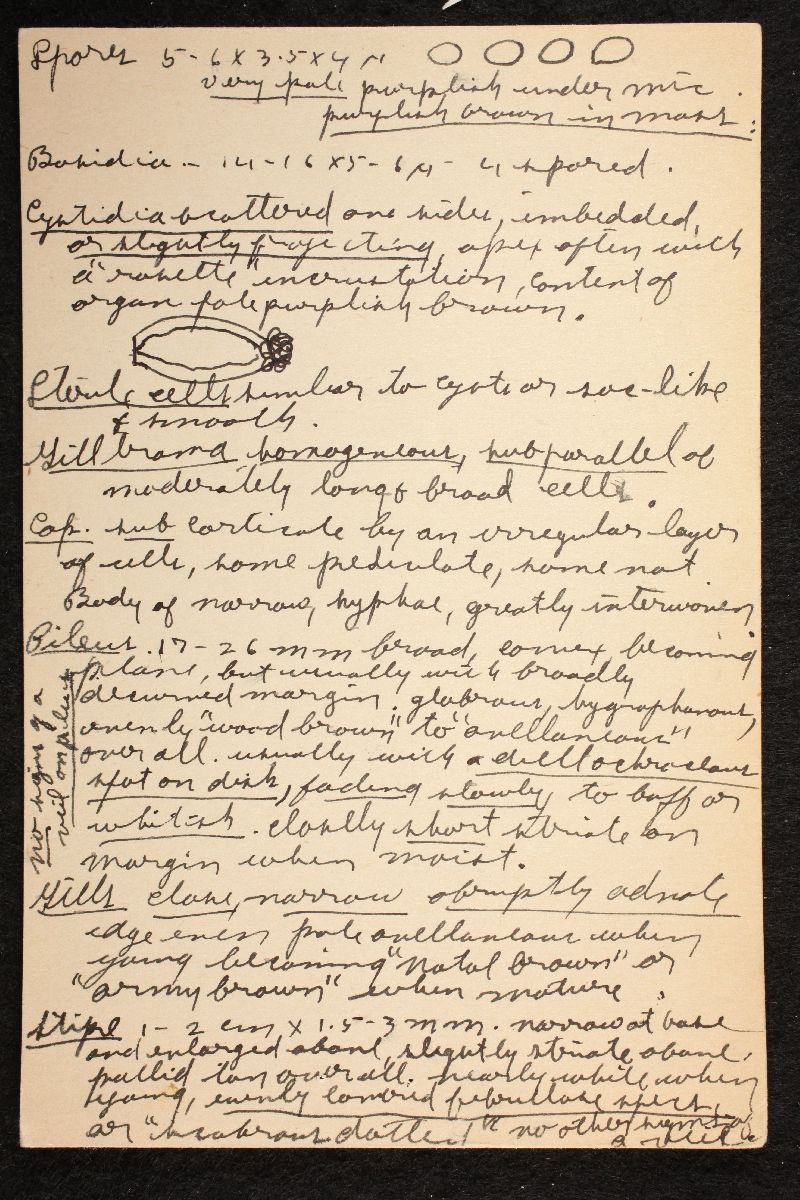 Spores 5-6 x 3.5 x 4 µ
very pale purplish under mic.
purplish brown in mass.
Basidia - 14-16 x 5-6 µ - 4 spored.
Cystidia scattered on sides, imbedded,
or slightly projecting, apex often with
a "rosette" incrustation, content of
organ pale purplish brown.
Sterile cells similar to cysts or sac-like
& smooth.
Gill trama homogeneous, subparallel of
moderately long & broad cells.
Cap. sub corticate by an irregular layer
of cells, some pediculate, some not
Body of narrow, hyphae, greatly interwoven
Pileus. 17-26 mm broad, convex becoming
plane, but usually with broadly
decurved margin. glabrous, hygrophanous,
evenly "wood brown" to "avellaneous"
over all. usually with a dull ochraceous
spot on disk, fading slowly to buff or
whitish. closely short striate on
margin when moist.
no signs of a
veil on pileus
Gills close, narrow abruptly adnate
edge even pale avellaneous when
young becoming "natal brown" or
"army brown" when mature.
Stipe 1-2 cm x 1.5-3 mm. narrow at base
and enlarged above, slightly striate above.
pallid tan over all. nearly white when
young, evenly
or "scabrous dotted" no other signs of
a veil.